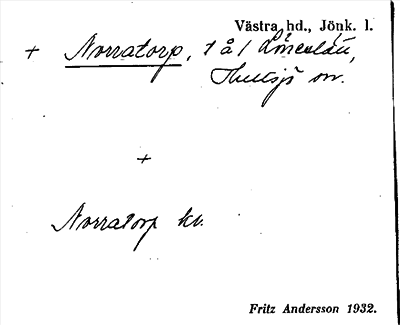 Västra hd., Jönk. l.
+ Norratorp, t å l
Hultsjö sn.
+
Norratorp kv.
Fritz Andersson 1932.